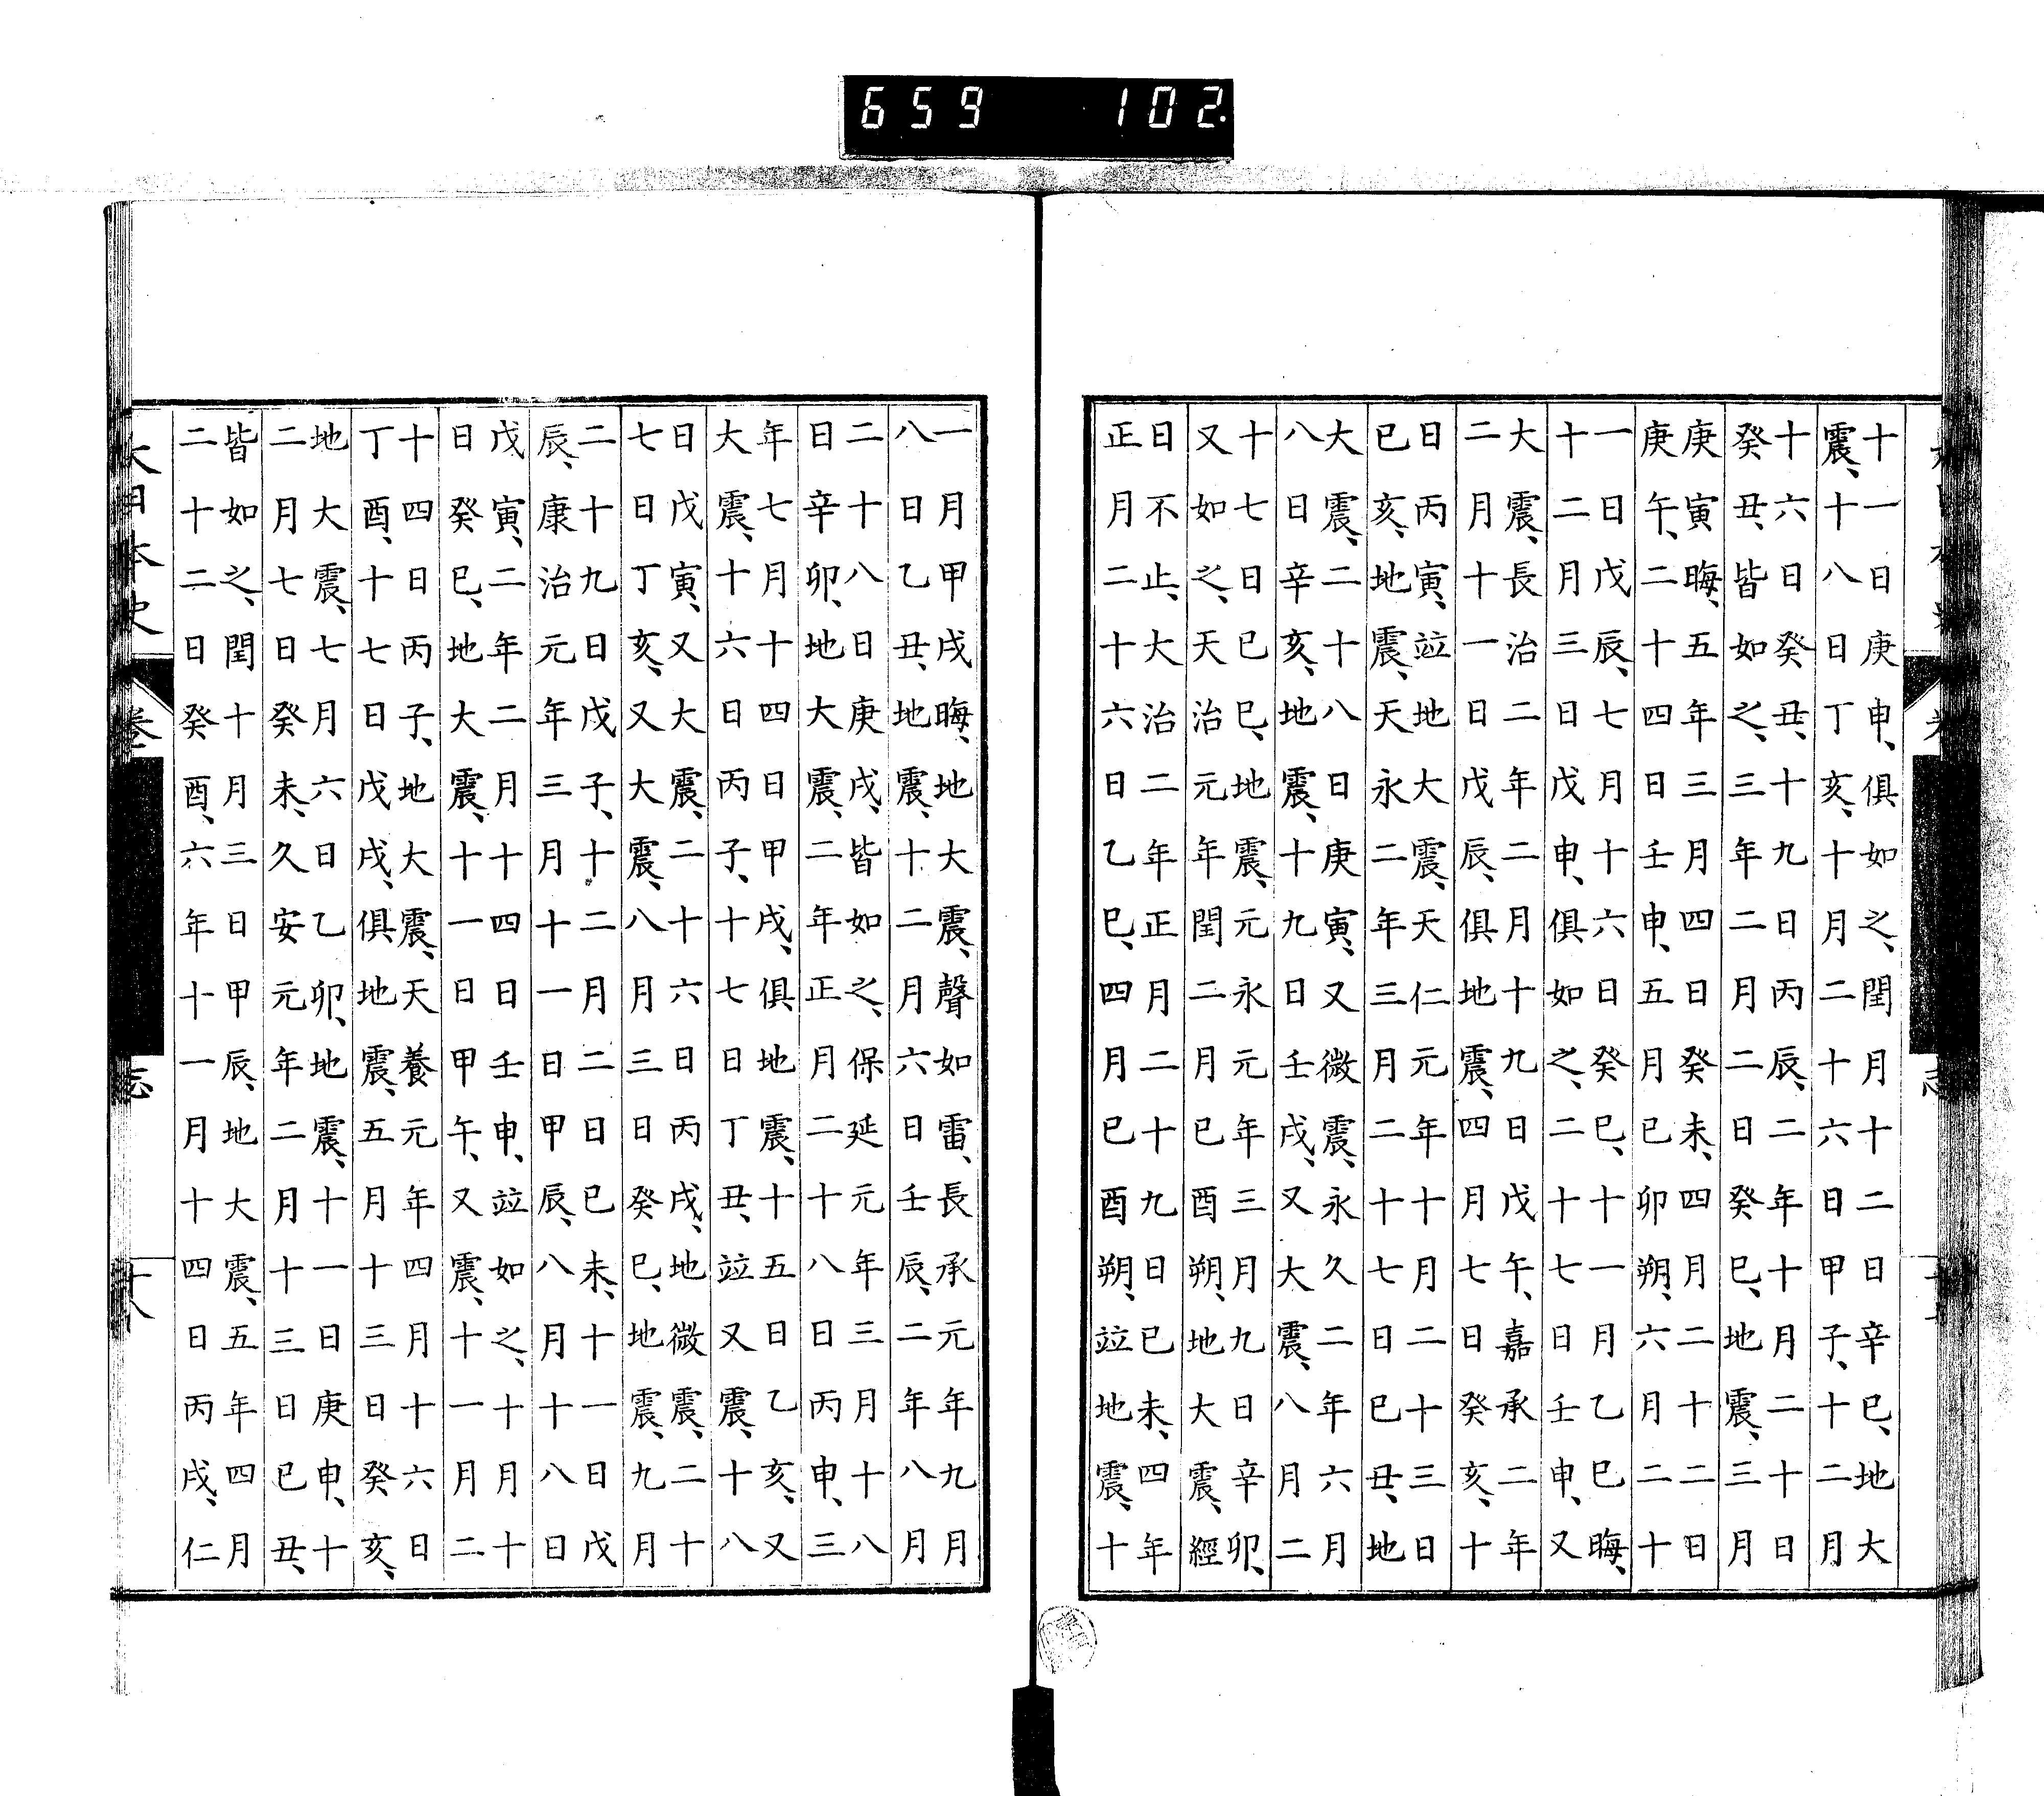 659 102
十一日庚申、俱如之、閏月十二日辛巳、地大
震、十八日丁亥、十月二十六日甲子、十二月
十六日癸丑、十九日丙辰、二年十月二十日
癸丑、皆如之、三年二月二日癸巳、地震、三月
庚寅晦、五年三月四日癸未、四月二十二日
庚午、二十四日壬申、五月已卯朔、六月二十
一日戊辰、七月十六日癸巳、十一月乙巳晦、
十二月三日戊申、俱如之、二十七日壬申、又
大震、長治二年二月十九日戊午、嘉承二年
二月十一日戊辰、俱地震、四月七日癸亥、十
日丙寅、竝地大震、天仁元年十月二十三日
已亥、地震、天永二年三月二十七日已丑、地
大震、二十八日庚寅、又微震、永久二年六月
八日辛亥、地震、十九日壬戌、又大震、八月二
十七日已巳、地震、元永元年三月九日辛卯、
又如之、天治元年閏二月已酉朔、地大震、經
日不止、大治二年正月二十九日已未、四年
正月二十六日乙巳、四月已酉朔、竝地震、十
一月甲戌晦、地大震、聲如雷、長承元年九月
八日乙丑、地震、十二月六日壬辰、二年八月
二十八日庚戌、皆如之、保延元年三月十八
日辛卯、地大震、二年正月二十八日丙申、三
年七月十四日甲戌、俱地震、十五日乙亥、又
大震、十六日丙子、十七日丁丑、竝又震、十八
日戊寅、又大震、二十六日丙戌、地微震、二十
七日丁亥、又大震、八月三日癸巳、地震、九月
二十九日戊子、十二月二日已未、十一日戊
辰、康治元年三月十一日甲辰、八月十八日
戊寅、二年二月十四日壬申、竝如之、十月十
日癸巳、地大震、十一日甲午、又震、十一月二
十四日丙子、地大震、天養元年四月十六日
丁酉、十七日戊戌、俱地震、五月十三日癸亥、
地大震、七月六日乙卯、地震、十一日庚申、十
二月七日癸未、久安元年二月十三日已丑、
皆如之、閏十月三日甲辰、地大震、五年四月
二十二日癸酉、六年十一月十四日丙戌、仁
大日本史 卷 志 十八